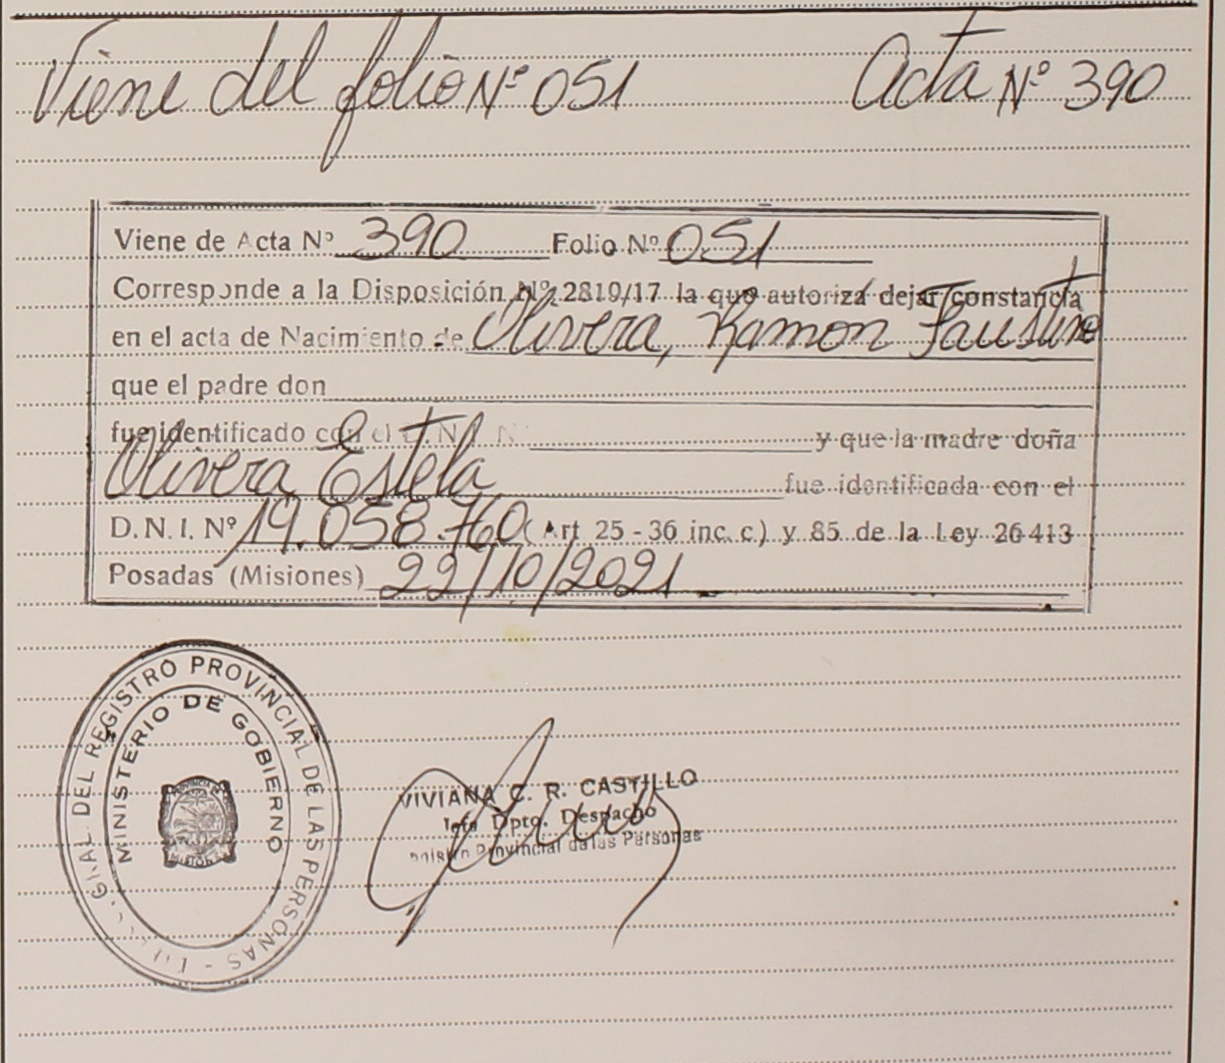 Viene del folio Nº 051 Acta Nº 390
Viene de Acta Nº 390 Folio Nº 051
Corresponde a la Disposición Nº 2819/17 la que autoriza dejar constancia
en el acta de Nacimiento de Olivera, Ramón Faustino
que el padre don
fue identificado con el D.N.I. Nº y que la madre doña
Olivera Estela fue identificada con el
D.N.I. Nº 19.058.760 (Art 25 - 36 inc. c) y 85 de la Ley 26413
Posadas (Misiones) 22/10/2021
GRAL. DEL REGISTRO PROVINCIAL DE LAS PERSONAS -
MINISTERIO DE GOBIERNO
VIVIANA C. R. CASTILLO
Jefa Dpto. Despacho
Registro Provincial de las Personas